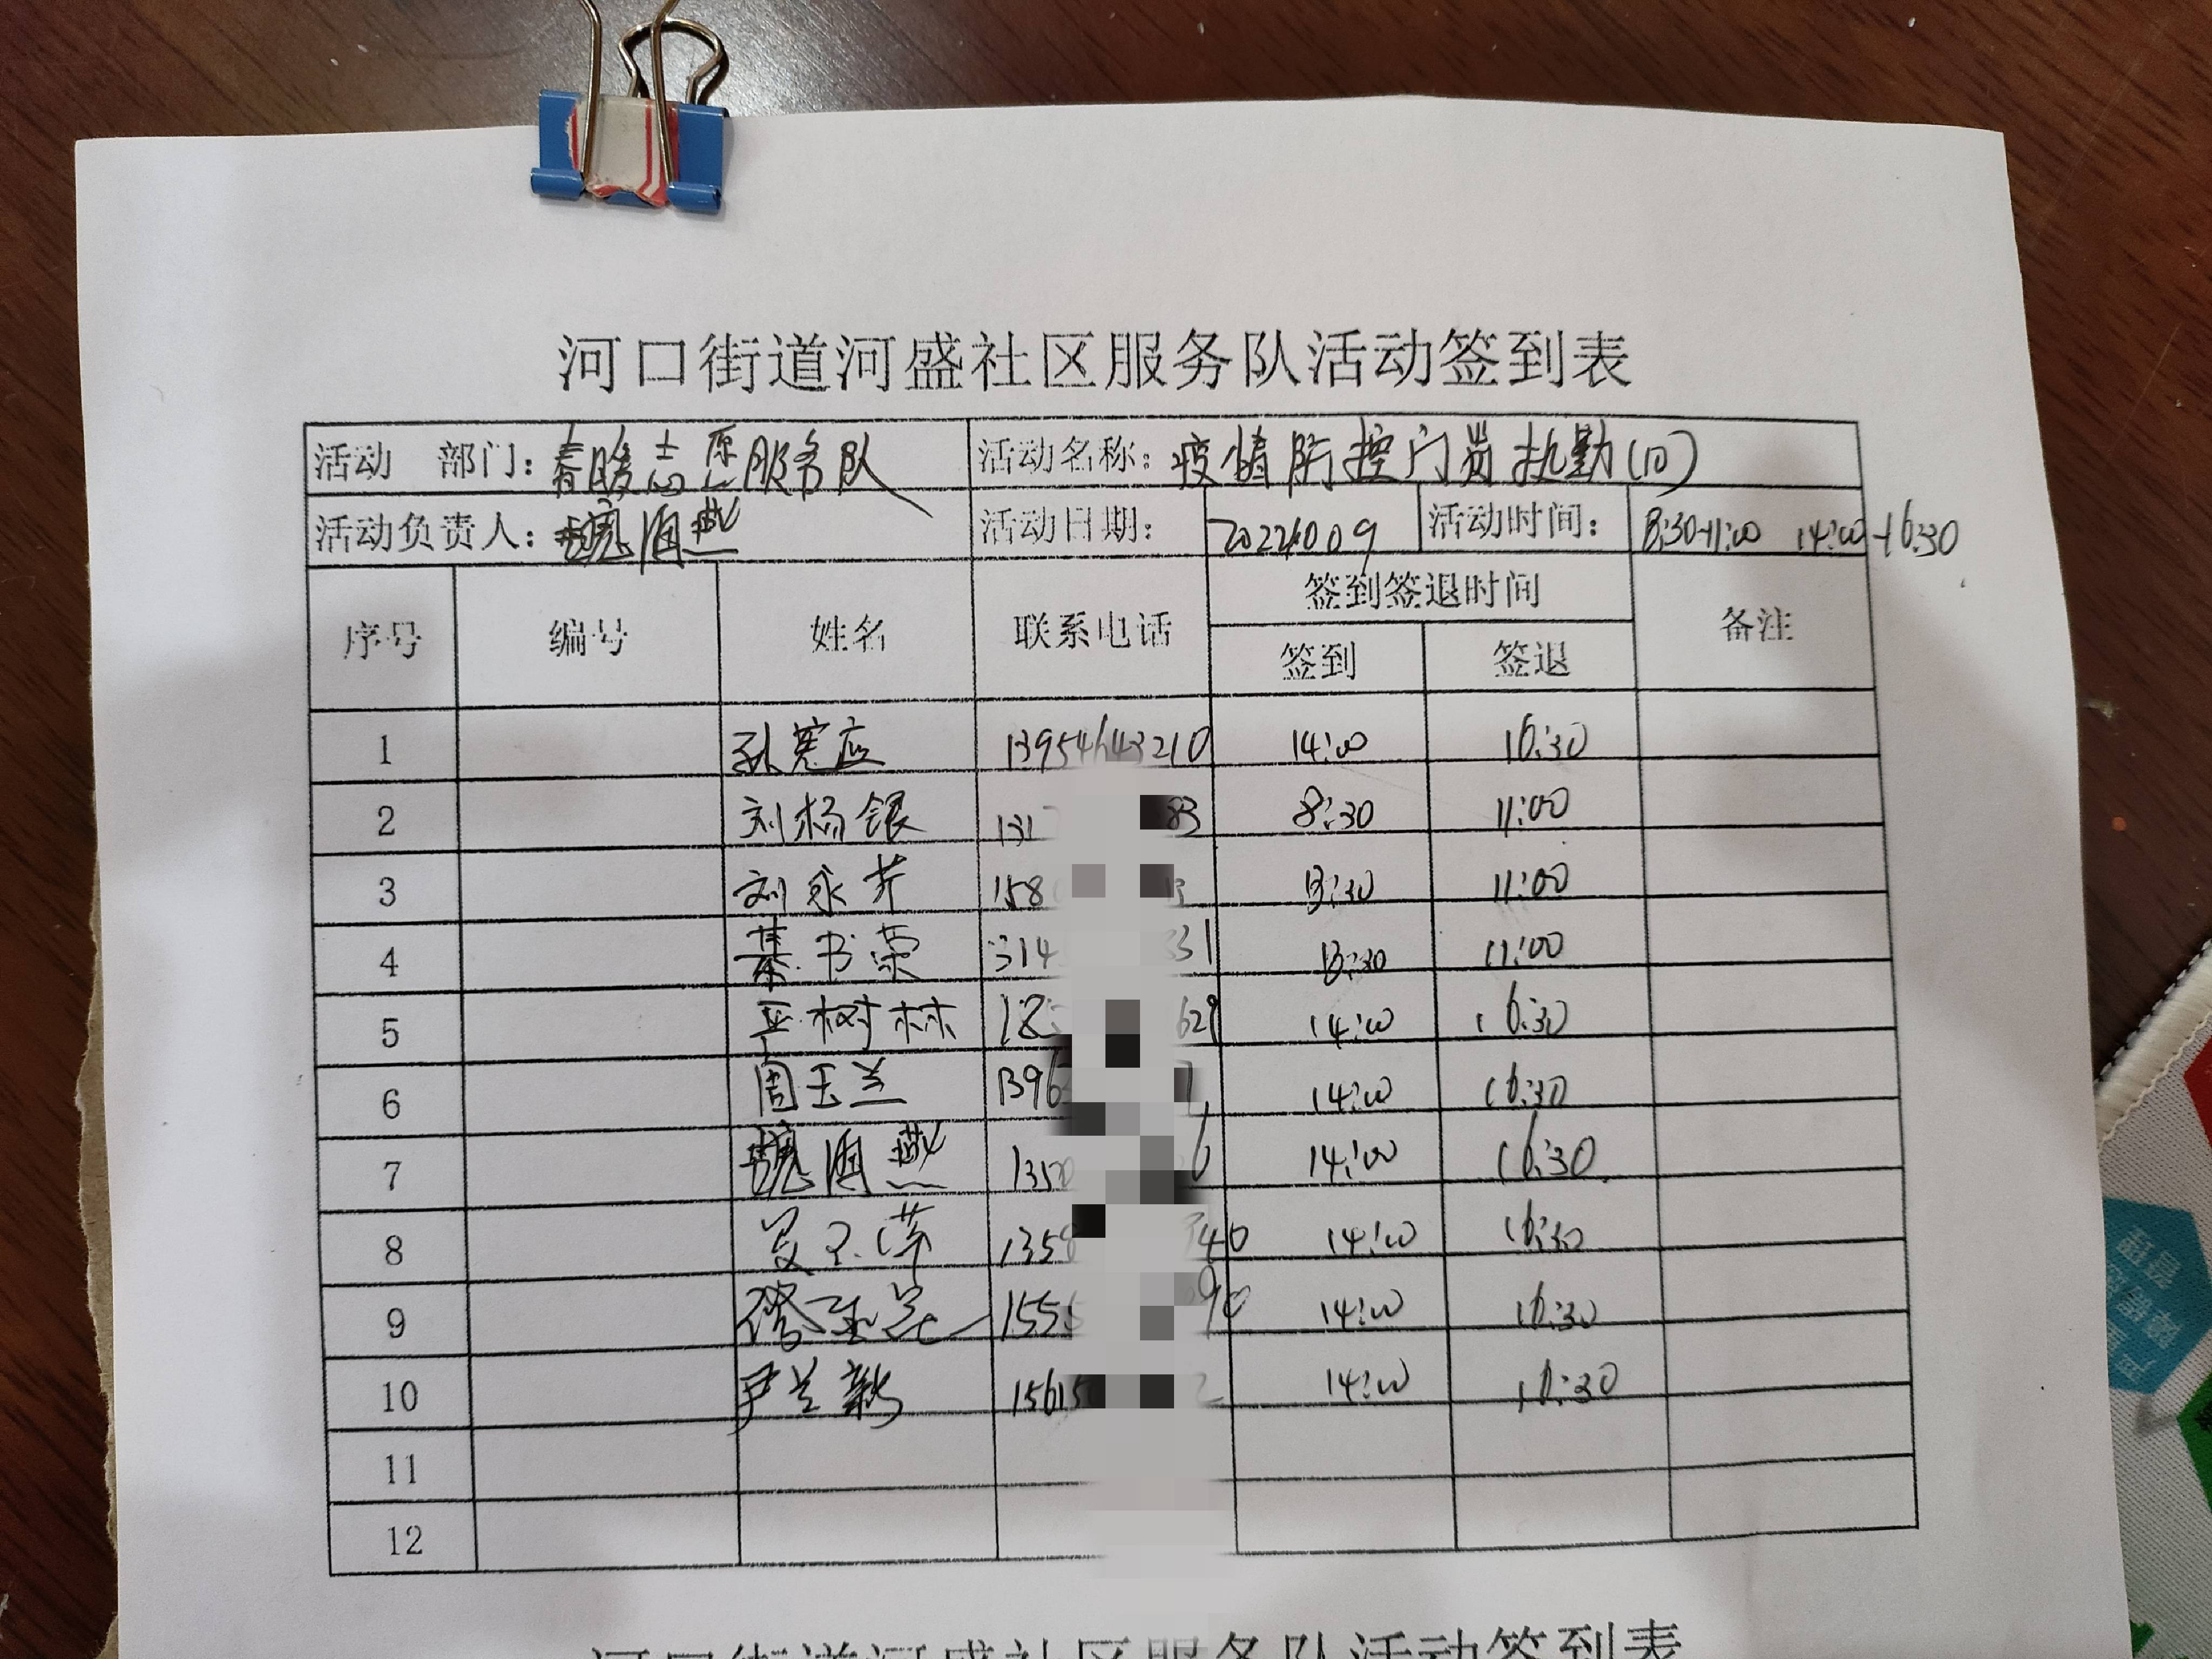 河口街道河盛社区服务队活动签到表
活动 部门：春暖志愿服务队 活动名称：疫情防控门岗执勤(10)
活动负责人：魏海燕 活动日期： 20221009 活动时间： 8:30-11:00 14:00-16:30
序号 编号 姓名 联系电话 签到签退时间 备注
签到 签退
1 孙宪应 13954643210 14:00 16:30
2 刘杨银 131 83 8:30 11:00
3 刘永芹 158 8:30 11:00
4 綦书荣 314 31 8:30 11:00
5 树林 18 629 14:00 16:30
6 周玉兰 1396 14:00 16:30
7 魏海燕 1350 6 14:00 16:30
8 1358 40 14:00 16:30
9 155 90 14:00 16:30
10 尹兰新 1561 2 14:00 16:30
11
12
河口街道河盛社区服务队活动签到表